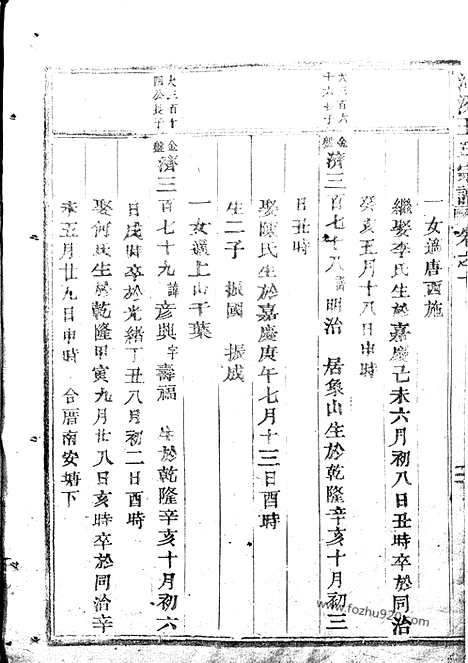 一女適唐西施
繼娶李氏生於嘉慶己未六月初八日丑時卒於同治
癸亥五月十八日申時
大三百六十六七子
金盤 濟三百七十八 諱 明治 居象山生於乾隆辛亥十月初三
日丑時
娶陳氏生於嘉慶庚午七月十三日酉時
生二子 振國 振成
一女適上山干葉
大三百十四公長子
金盤 濟三百七十九 諱 彥興 字 壽福 生於乾隆辛亥十月初六
日戌時卒於光緒丁丑八月初二日酉時
娶何氏生於乾隆甲寅九月廿八日亥時卒於同治辛
未五月廿九日申時 合厝南安塘下
www.fozhu920.com